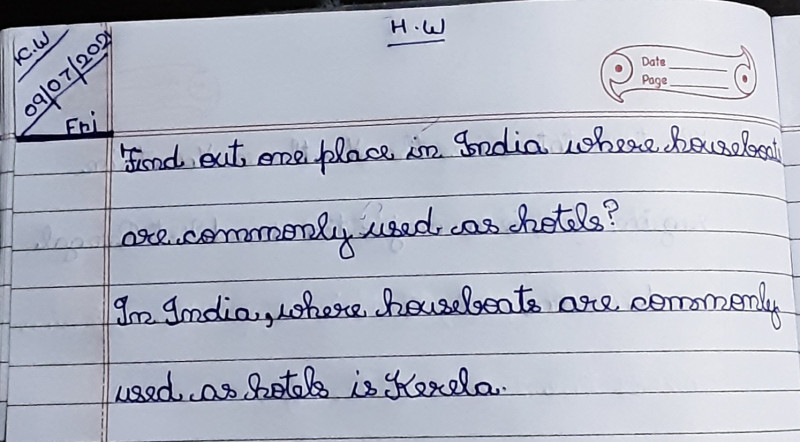 H.W
K.W
09/07/202
Fri
Date
Page
Find out one place in India where houseboats
are commonly used as hotels?
In India, where houseboats are commonly
used as hotels is Kerela.